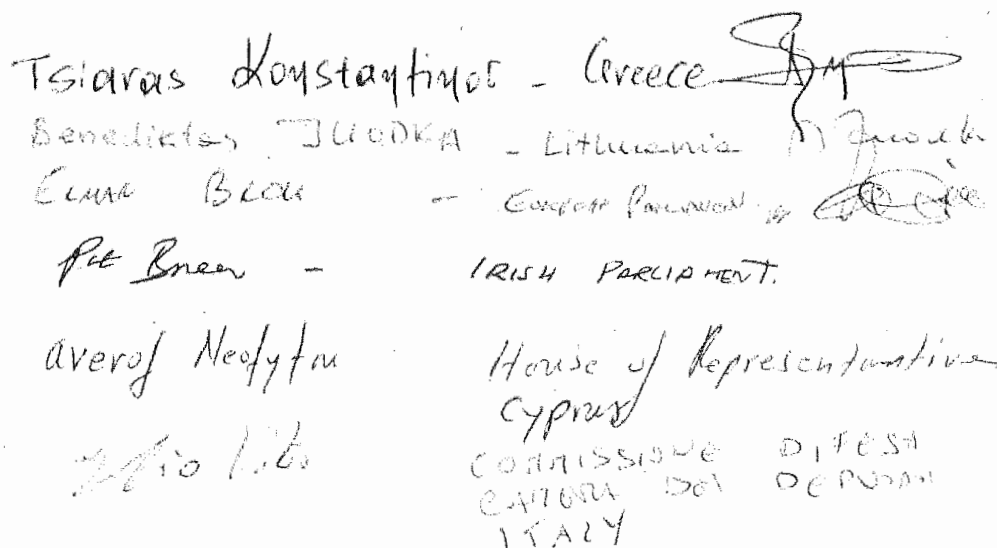 Tsiaras Konstantinos - Greece
Benediktas JUODKA - Lithuania
ELMAR BROK - EUROPEAN PARLIAMENT
Pat Breen - IRISH PARLIAMENT.
Averof Neofytou House of Representantive
Cyprus
COMMISSIONE DIFESA
CAMERA DEI DEPUTATI
ITALY